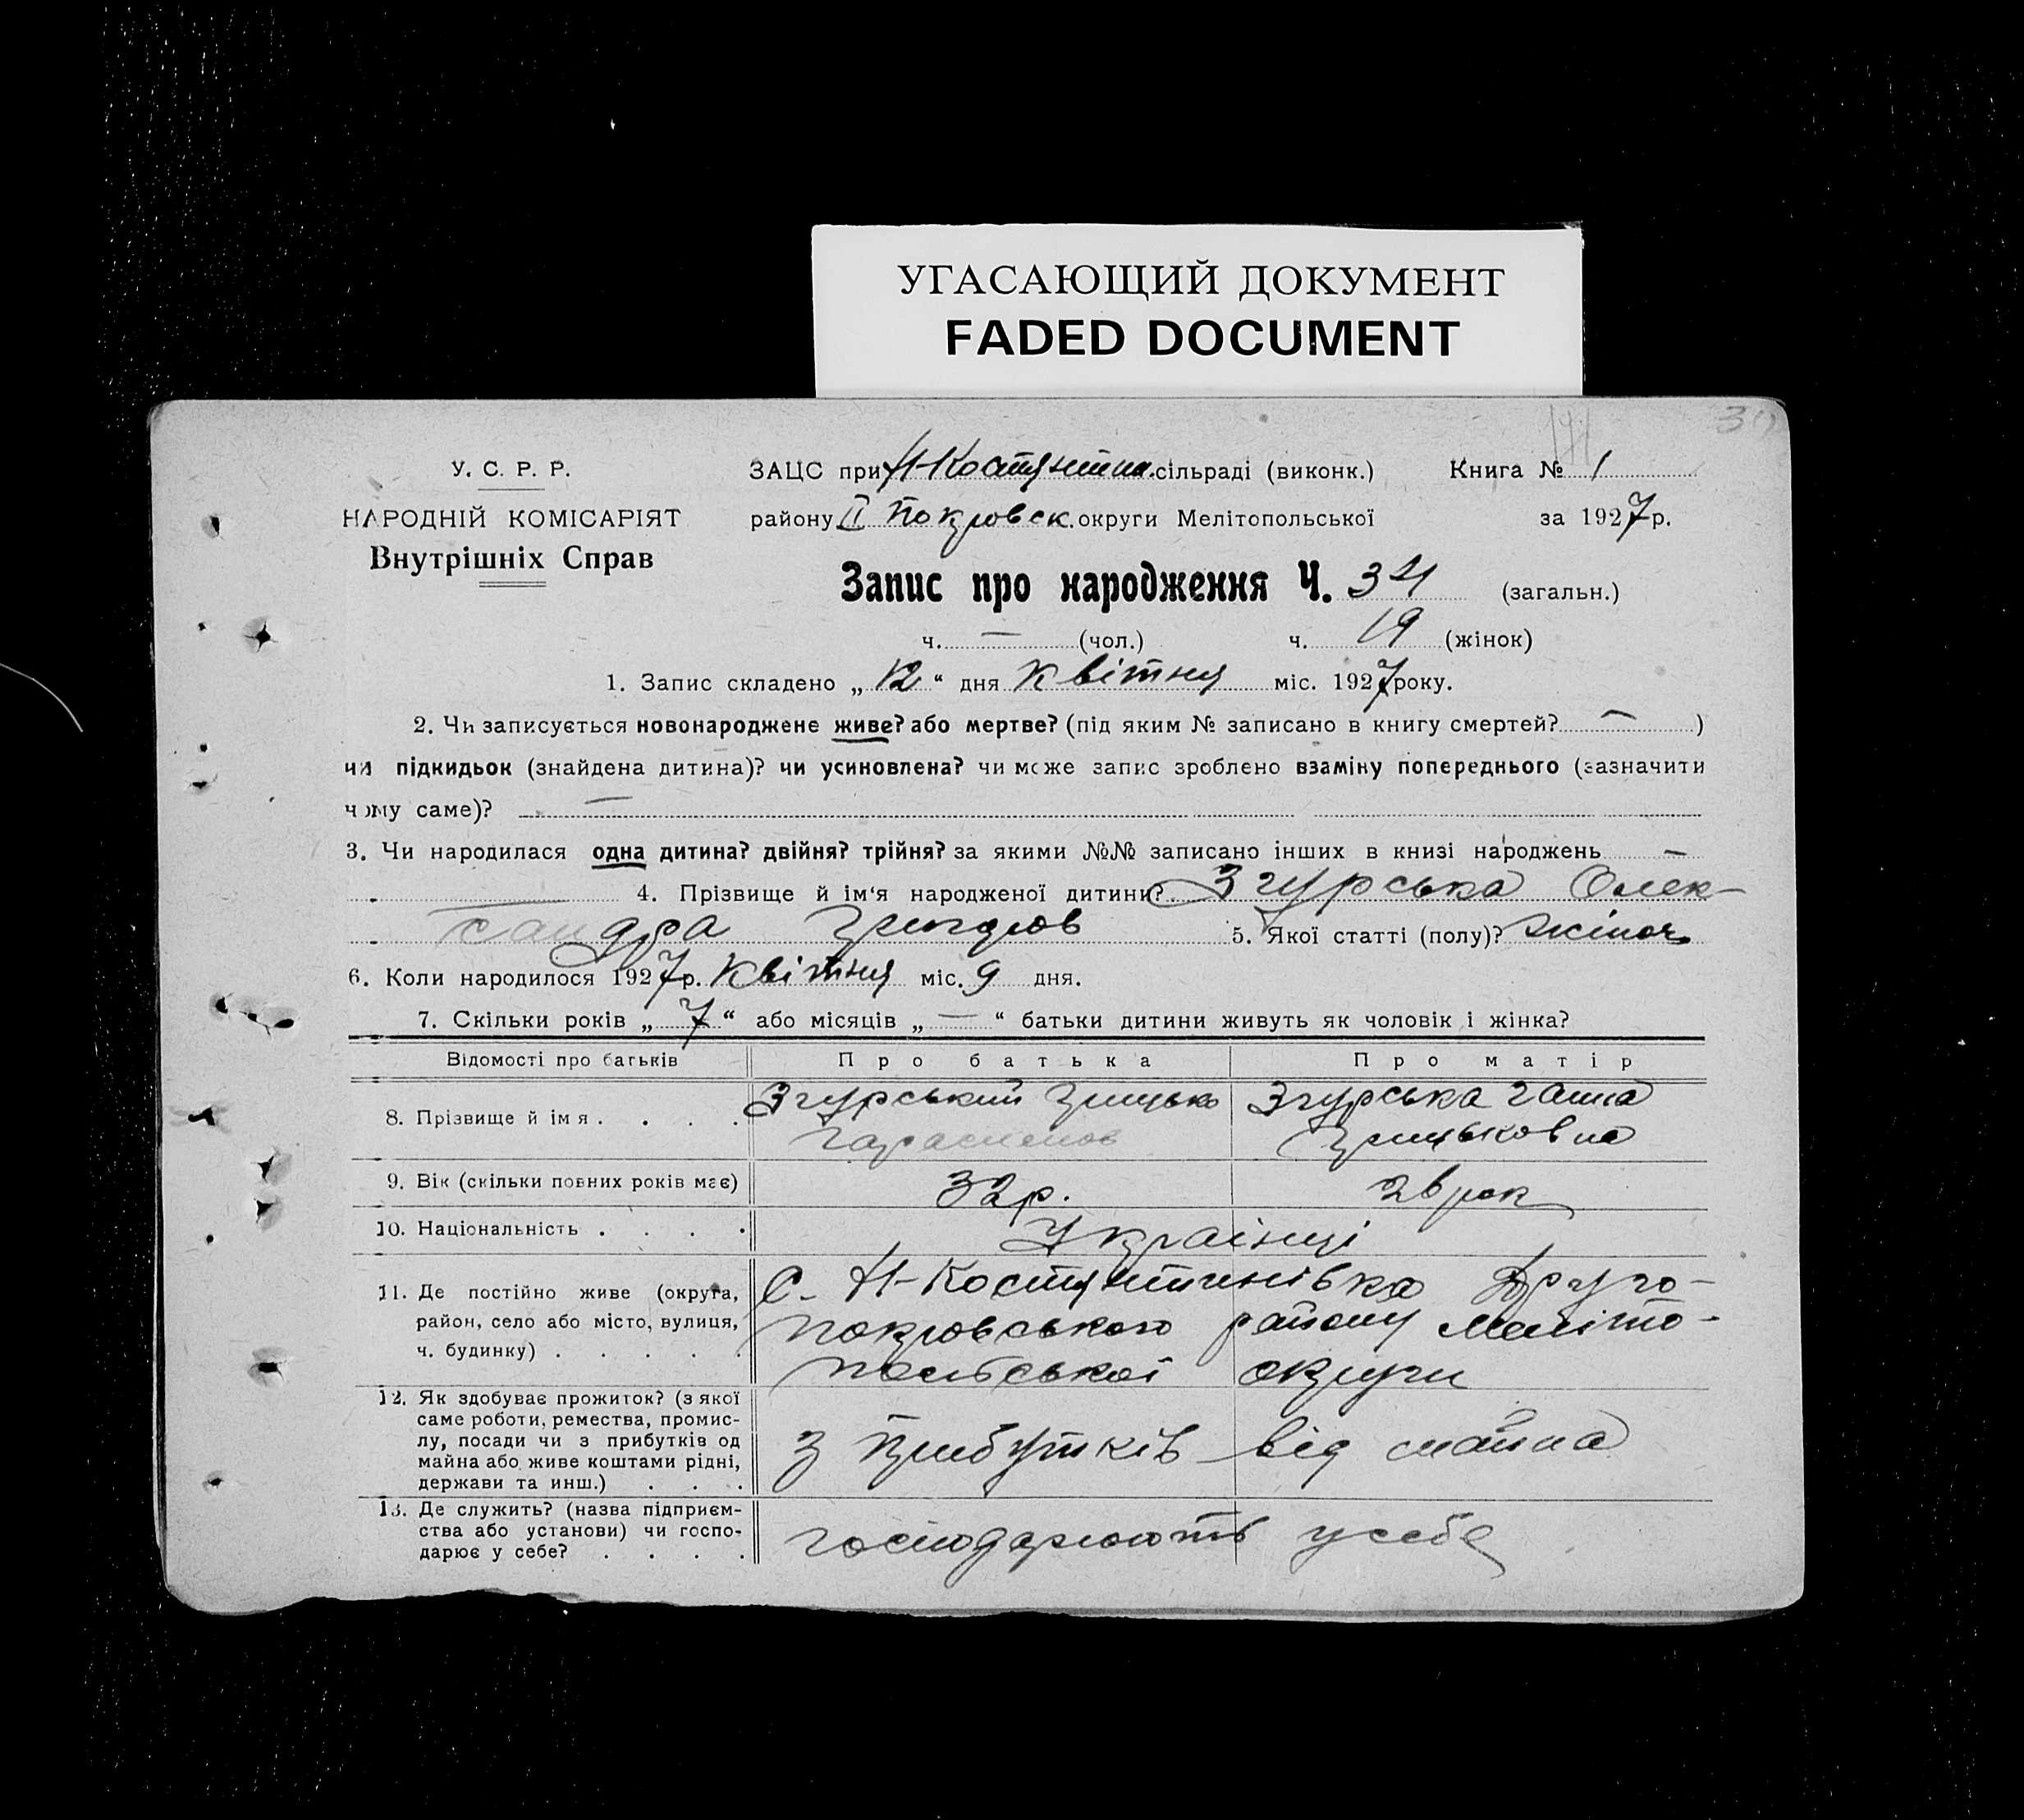 УГАСАЮЩИЙ ДОКУМЕНТ
FADED DOCUMENT
У. С. Р. Р.
НАРОДНІЙ КОМІСАРІЯТ
Внутрішніх Справ
ЗАЦС при Н-Костянтин. сільраді (виконк.)
району ІІ Покровск. округи Мелітопольської
Книга № 1
за 1927 р.
Запис про народження Ч. 34 (загальн.)
ч. — (чол.) ч. 19 (жінок)
1. Запис складено „12“ дня Квітня міс. 1927 року.
2. Чи записується новонароджене живе? або мертве? (під яким № записано в книгу смертей? — )
чи підкидьок (знайдена дитина)? чи усиновлена? чи може запис зроблено взаміну попереднього (зазначити
чому саме)? —
3. Чи народилася одна дитина? двійня? трійня? за якими №№ записано інших в книзі народжень —
4. Прізвище й ім‘я народженої дитини? Згурська Олек-
сандра 5. Якої статті (полу)? жіноч
6. Коли народилося 1927 р. Квітня міс. 9 дня.
7. Скільки років „7“ або місяців „—“ батьки дитини живуть як чоловік і жінка?
Відомості про батьків Про батька Про матір
8. Прізвище й імя . . . . Згурський Грицько Згурська Ганна
Герасимов Грицьковна
9. Вік (скільки повних років має) 32 р. 26 рок
10. Національність . . . . Українці
11. Де постійно живе (округа, район, село або місто, вулиця, ч. будинку) . . . . .
с. Н-Костянтинівка Друго-
покровського району Меліто-
польської округи
12. Як здобуває прожиток? (з якої
саме роботи, ремества, промис-
лу, посади чи з прибутків од
майна або живе коштами рідні,
держави та инш.) . . .
з прибутків від майна
13. Де служить? (назва підприєм-
ства або установи) чи госпо-
дарює у себе? . . . .
господарюють у себе